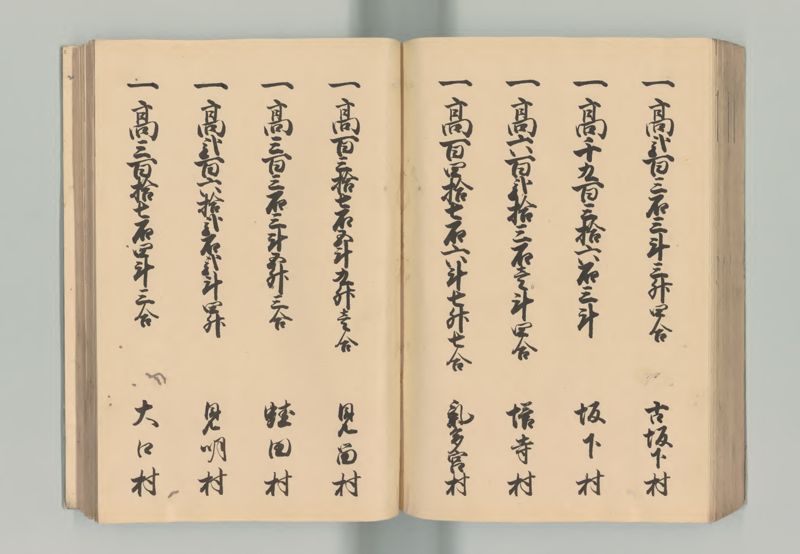 一高弐百三石三斗三升四合 古坂下村
一高千九百三拾六石三斗 坂下村
一高六百弐拾三石壱斗四合 悟寺村
一高百四拾七石六斗七升七合 乳宮村
一高百三拾七石五斗九升壱合 見留村
一高三百三石三斗五升三合 蛙田村
一高弐百六拾弐石弐斗四升 見明村
一高三百拾七石四斗三合 大口村